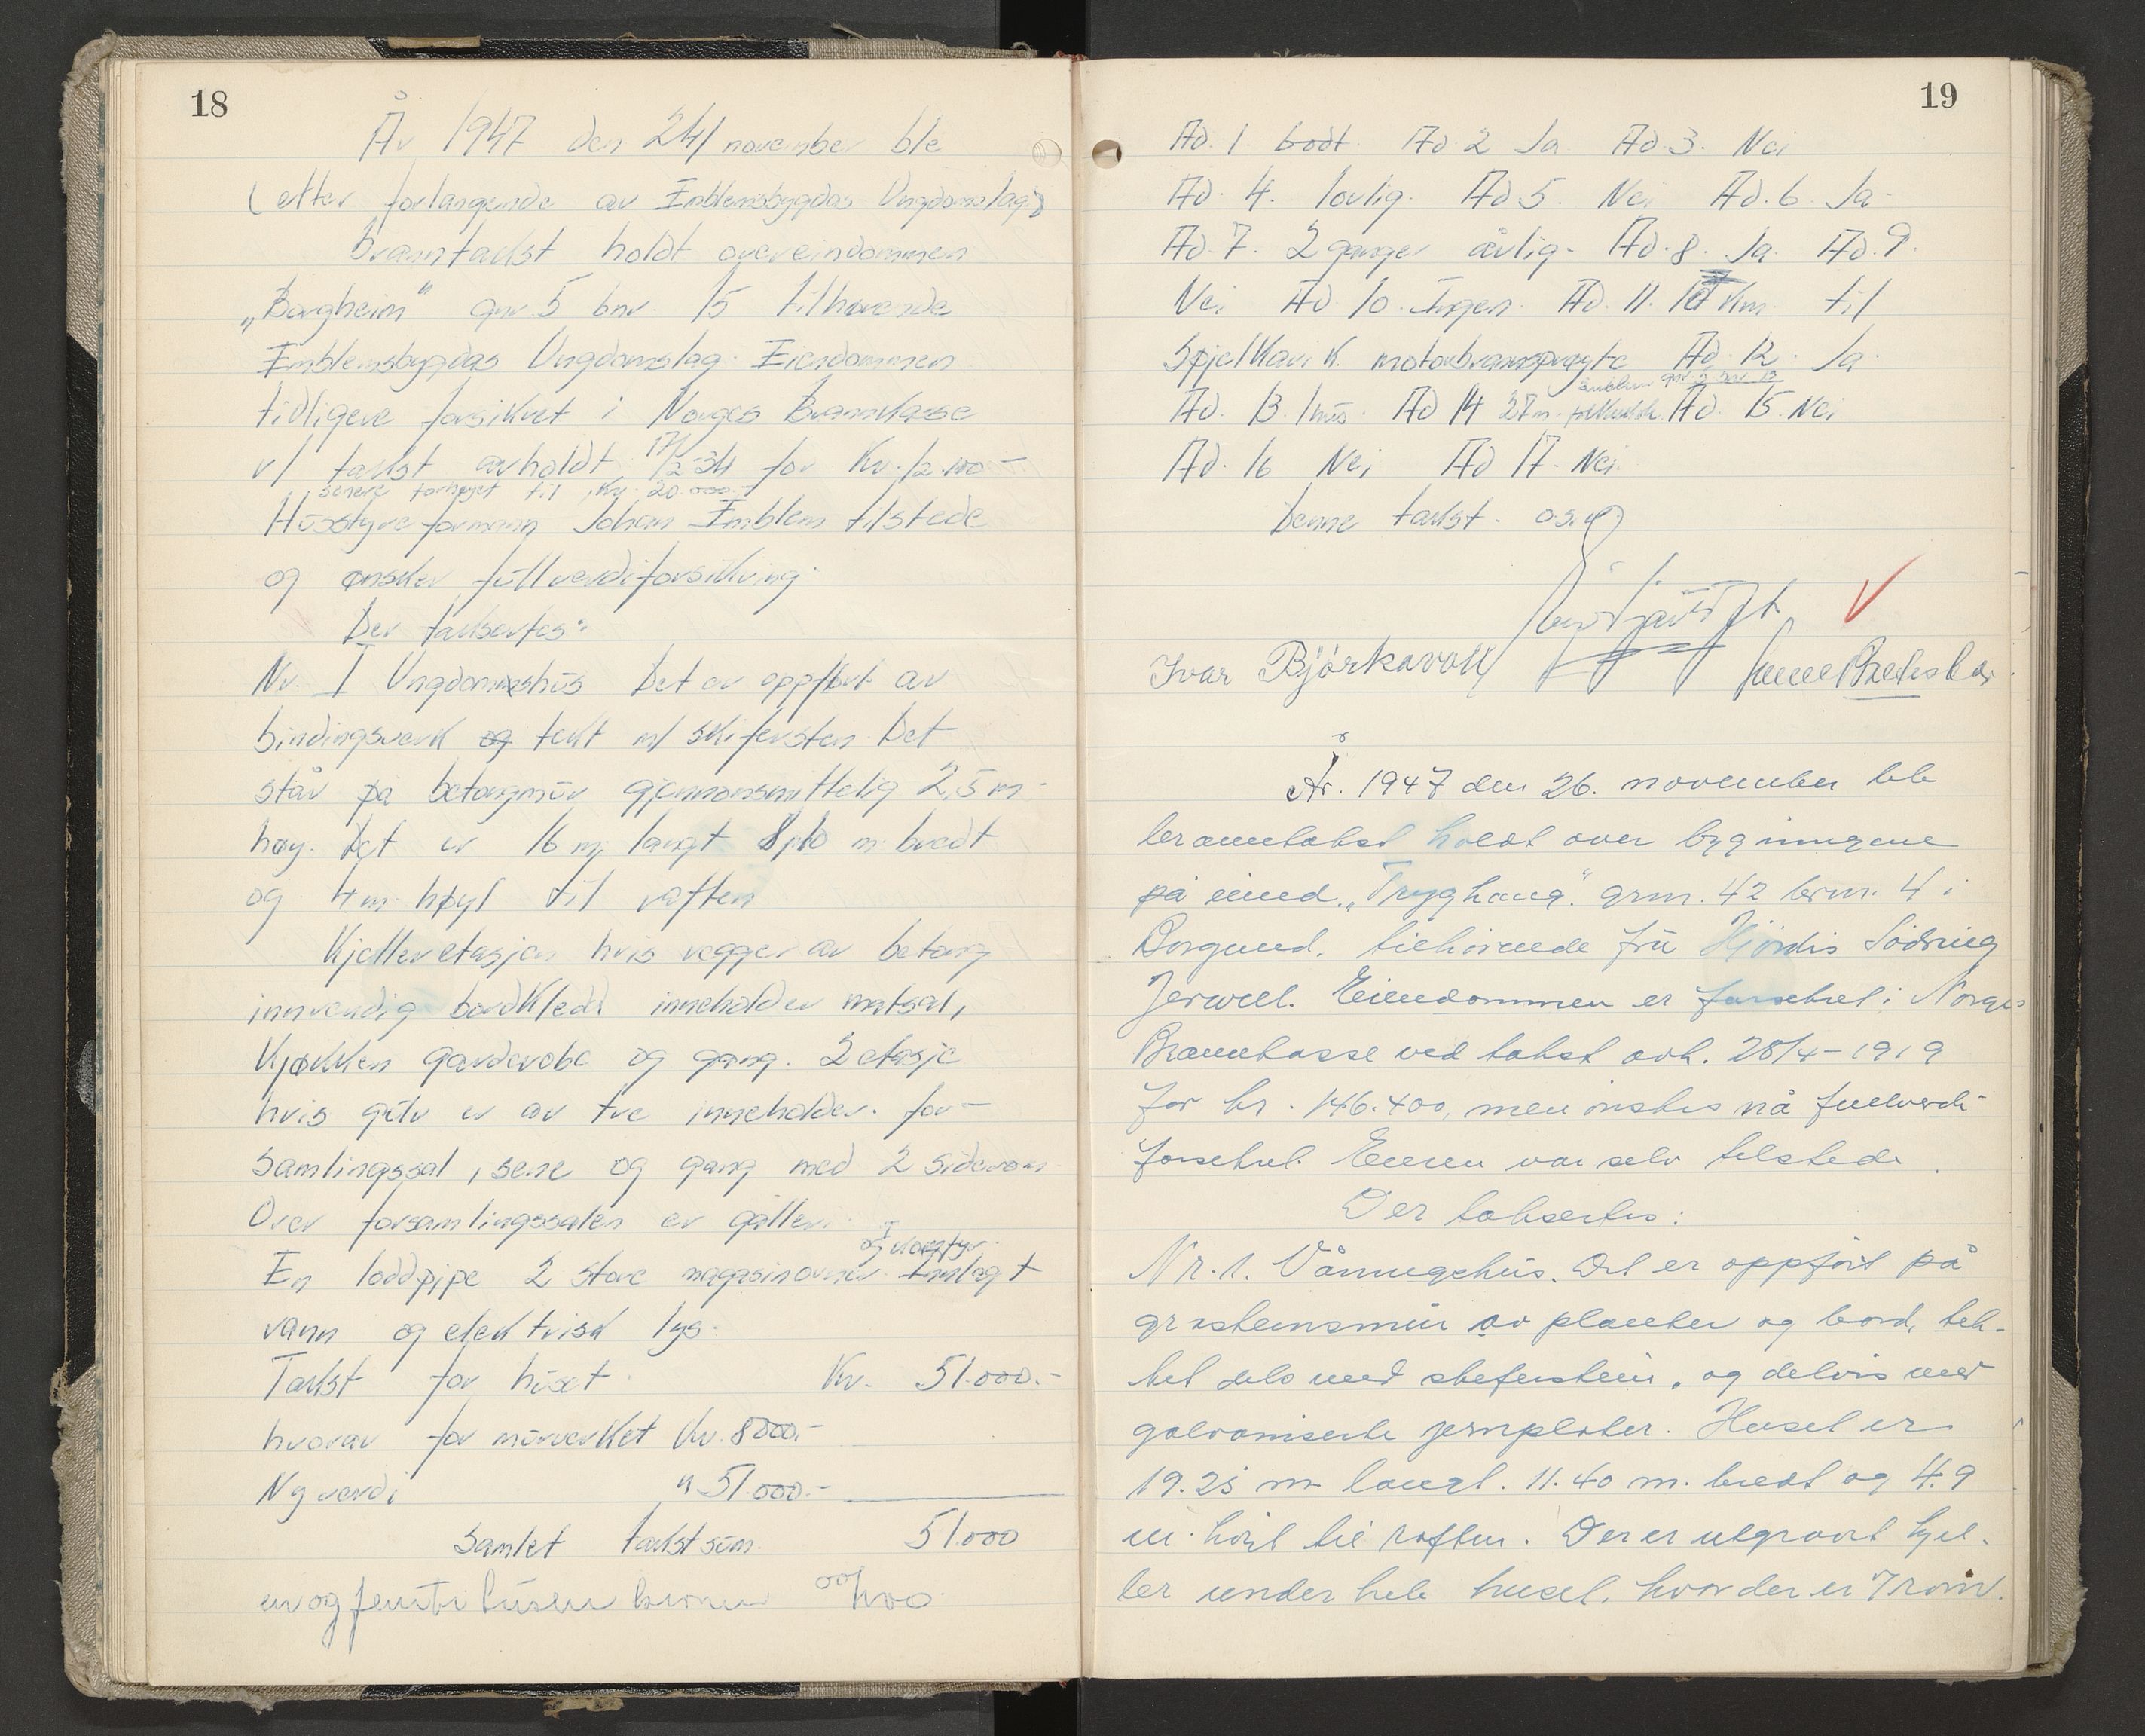 18
År 1947 den 24/ november ble
(etter forlangende av Emblemsbygdas Ungdomslag)
branntakst holdt over eindommen
„Borgheim" gnr 5 bnr. 15 tilhørende
Emblemsbygdas Ungdomslag. Eiendommen
tidligere forsikret i Norges Brannkasse
v/ takst avholdt 17/2-34 for Kr. 12.100-
senere forhøyet til Kr. 20.000.-
Husstyre formann Johan Emblem tilstede
og ønsker fullverdiforsikring.
Der taksertes:
Nr. I Ungdomshus Det er oppført av
bindingsverk og tekt m/ skifersten. Det
står på betongmur gjennomsnittelig 2,5 m.
høy. Det er 16 m. langt 8,10 m. bredt
og 4 m. høyt til raften
Kjelleretasjen hvis vegger av betong
innvendig bordkledd inneholder matsal,
kjøkken garderobe og gang. 2 etasje
hvis gulv er av tre inneholder. for-
samlingssal, sene og gang med 2 siderom
Over forsamlingssalen er galleri.
En loddpipe 2 store magasinovner. Innlagt
vann og elektrisk lys.
Takst for huset Kr. 51.000.-
hvorav for murverket Kr. 8000.-
Ny verdi " 51.000.-
Samlet takst sum. 51.000
en og femti tusen kroner 00/100
19
Ad. 1. bodt. Ad 2 Ja Ad. 3. Nei
Ad. 4. lovlig. Ad 5. Nei Ad. 6. Ja-
Ad. 7. 2 ganger årlig- Ad. 8. Ja. Ad. 9.
Nei Ad. 10. Ingen. Ad. 11. 10 Km. til
Spjelkavik. motorbrannsprøyte Ad. 12. Ja.
Emblem gnr 5 bnr 12
Ad. 13. 1 hus. Ad 14 27 m. Ad. 15. Nei
Ad. 16 Nei Ad 17. Nei.
Denne takst. o.s.v
Ivar Björkavoll
År. 1947 den 26. november ble
branntakst holdt over bygningene
på eiend. „Tryghaug". grnr. 42 brnr. 4 i
Borgund. tilhörende fru Hjördis Södring
Jerwell. Eiendommen er forsikret i Norges
Brannkasse ved takst avh. 28/4-1919
for kr. 146.400, men önskes nå fullverdi-
forsikret. Eieren var selv tilstede.
Der taksertes:
Nr. 1. Våningshus. Det er oppfört på
gråsteinsmur av planker og bord, tek-
ket dels med skiferstein, og delvis med
galvaniserte jernplater. Huset er
19.25 m langt. 11.40 m. bredt og 4.9
m. höyt til raften. Der er utgravet kjel-
ler under hele huset, hvor der er 7 rom.